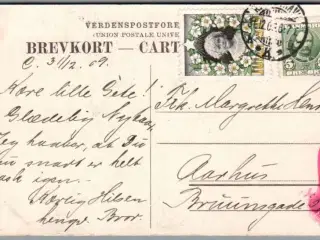 VERDENSPOSTFORE
UNION POSTALE UNIVE
BREVKORT — CART
C. 31/12 09.
Kære lille Grete!
Glædelig Nytaar,
Jeg haaber, at Du
nu snart er helt
rask igen.
Kærlig Hilsen
Bror.
Frk. Margrethe Hen
Aarhus
Bruunsgade